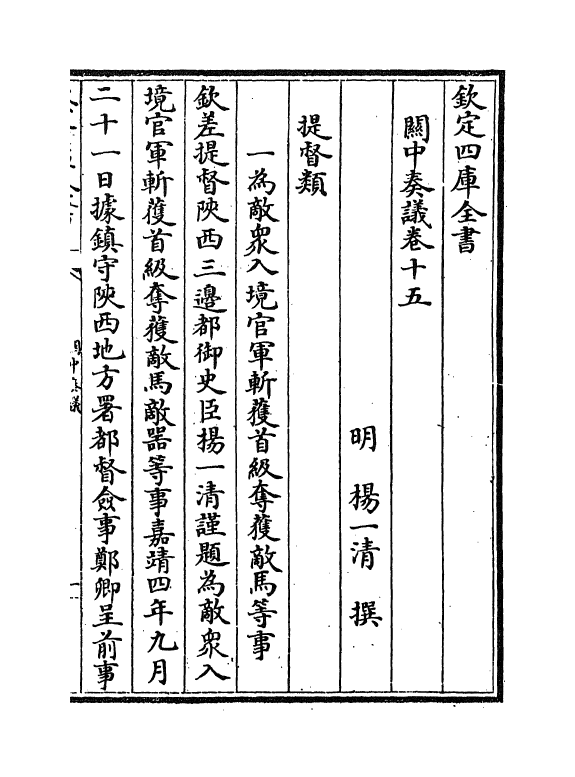 欽定四庫全書
關中奏議卷十五
明 楊一清 撰
提督類
一為敵衆入境官軍斬獲首級奪獲敵馬等事
欽差提督陜西三邊都御史臣楊一清謹題為敵衆入
境官軍斬獲首級奪獲敵馬敵器等事嘉靖四年九月
二十一日據鎮守陜西地方署都督僉事鄭卿呈前事